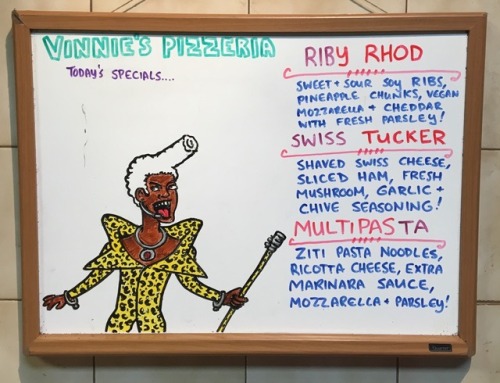 VINNIE'S PIZZERIA
TODAY'S SPECIALS....
RIBY RHOD
SWEET + SOUR SOY RIBS,
PINEAPPLE CHUNKS, VEGAN
MOZZARELLA + CHEDDAR
WITH FRESH PARSLEY!
SWISS TUCKER
SHAVED SWISS CHEESE,
SLICED HAM, FRESH
MUSHROOM, GARLIC +
CHIVE SEASONING!
MULTIPASTA
ZITI PASTA NOODLES,
RICOTTA CHEESE, EXTRA
MARINARA SAUCE,
MOZZARELLA + PARSLEY!